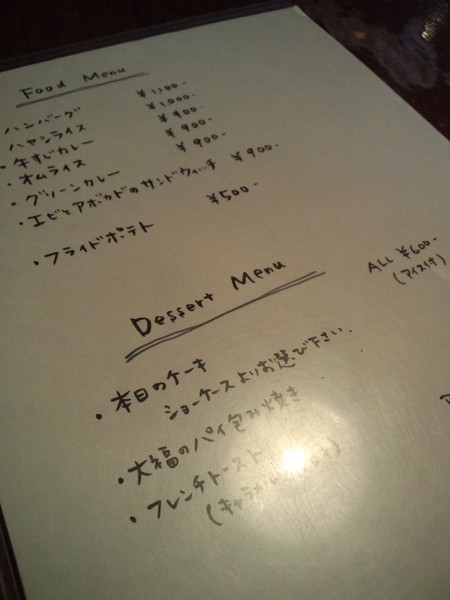 Food Menu
ハンバーグ ¥1,100-
ハヤシライス ¥1,000-
・牛すじカレー ¥900-
・オムライス ¥900-
・グリーンカレー ¥900-
・エビとアボカドのサンドウィッチ ¥900-
・フライドポテト ¥500-
Dessert Menu
ALL ¥600-
(アイス付)
・本日のケーキ
ショーケースよりお選び下さい.
・大福のパイ包み焼き
・フレンチトースト